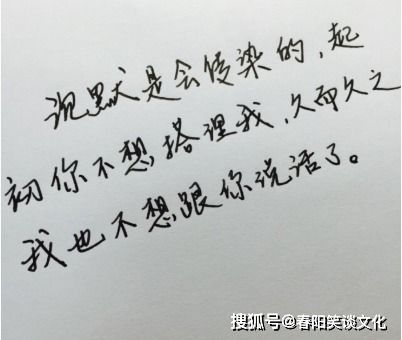 沉默是会传染的，起
初你不想搭理我，久而久之
我也不想跟你说话了。
搜狐号@春阳笑谈文化